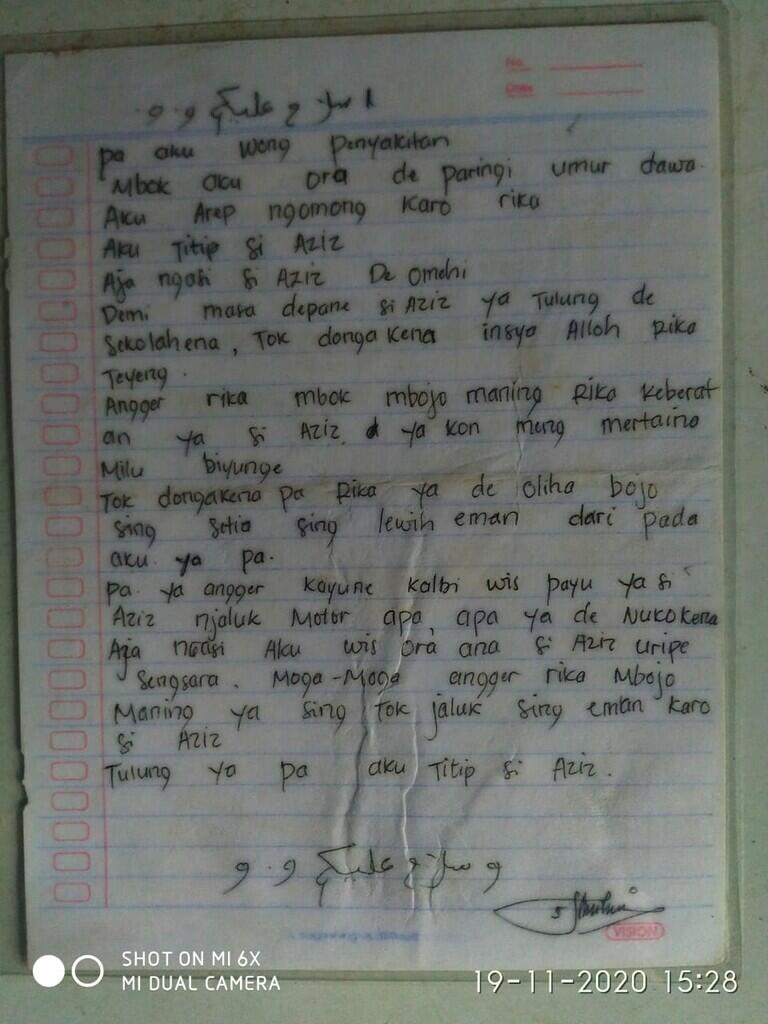 No.
Date
السلام عليكم و. و
pa aku wong penyakitan
Mbok aku ora de paringi umur dawa.
Aku Arep ngomong karo rika
Aku Titip si Aziz
Aja ngasi si Aziz De omehi
Demi masa depane si Aziz ya Tulung de
Sekolahena, Tok donga kena insya Alloh Rika
Teyeng.
Angger rika mbok mbojo maning Rika keberat
an ya si Aziz ya kon meng mertaina
Milu biyunge
Tok dongakena pa Rika ya de oliha bojo
sing setia sing lewih eman dari pada
aku ya pa.
pa ya angger kayune kalbi wis payu ya si
Aziz njaluk Motor apa, apa ya de Nukokena
Aja ngasi Aku wis ora ana si Aziz uripe
Sengsara. Moga-Moga angger rika Mbojo
Maning ya sing Tok jaluk sing eman karo
si Aziz
Tulung ya pa aku Titip si Aziz.
و سلام عليكم و. و
VISION
SHOT ON MI 6X
MI DUAL CAMERA
19-11-2020 15:28